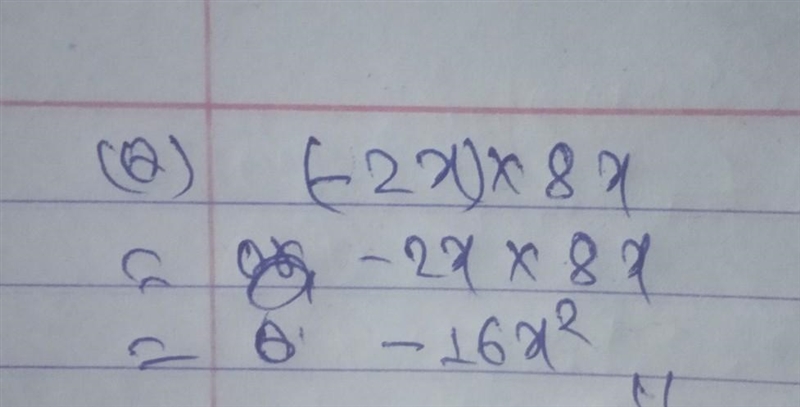 (a) (-2x) × 8x
= -2x × 8x
= -16x²